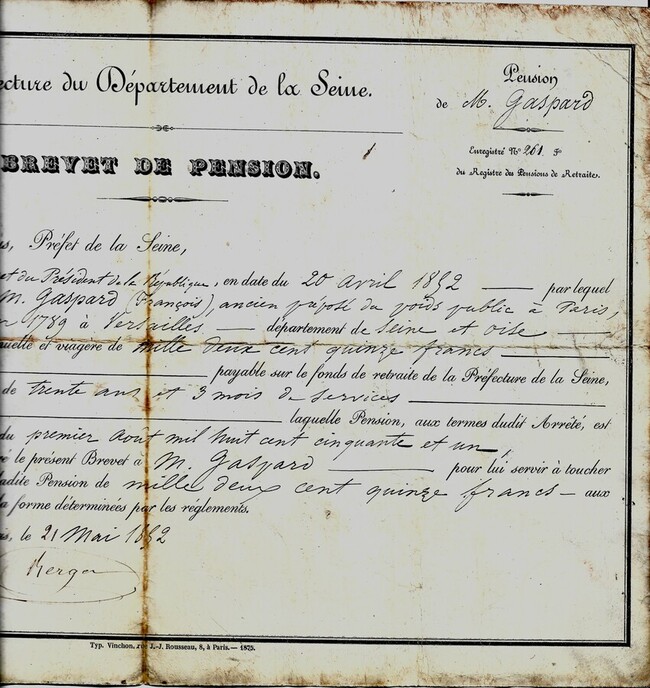 ecture du Département de la Seine.
Pension
de M. Gaspard
BREVET DE PENSION.
Enregistré N° 261. F°
du Registre des Pensions de Retraites.
s, Préfet de la Seine,
et du Président de la République, en date du 20 avril 1852 par lequel
M. Gaspard (François), ancien préposé du poids public à Paris,
1789 à Versailles département de Seine et Oise
uelle et viagère de mille deux cent quinze francs
payable sur le fonds de retraite de la Préfecture de la Seine,
de trente ans et 3 mois de services
laquelle Pension, aux termes dudit Arrêté, est
du premier août mil huit cent cinquante et un,
ré le présent Brevet à M. Gaspard pour lui servir à toucher
adite Pension de mille deux cent quinze francs – aux
a forme déterminées par les réglements.
s, le 21 Mai 1852
Typ. Vinchon, rue J.-J. Rousseau, 8, à Paris. — 1875.